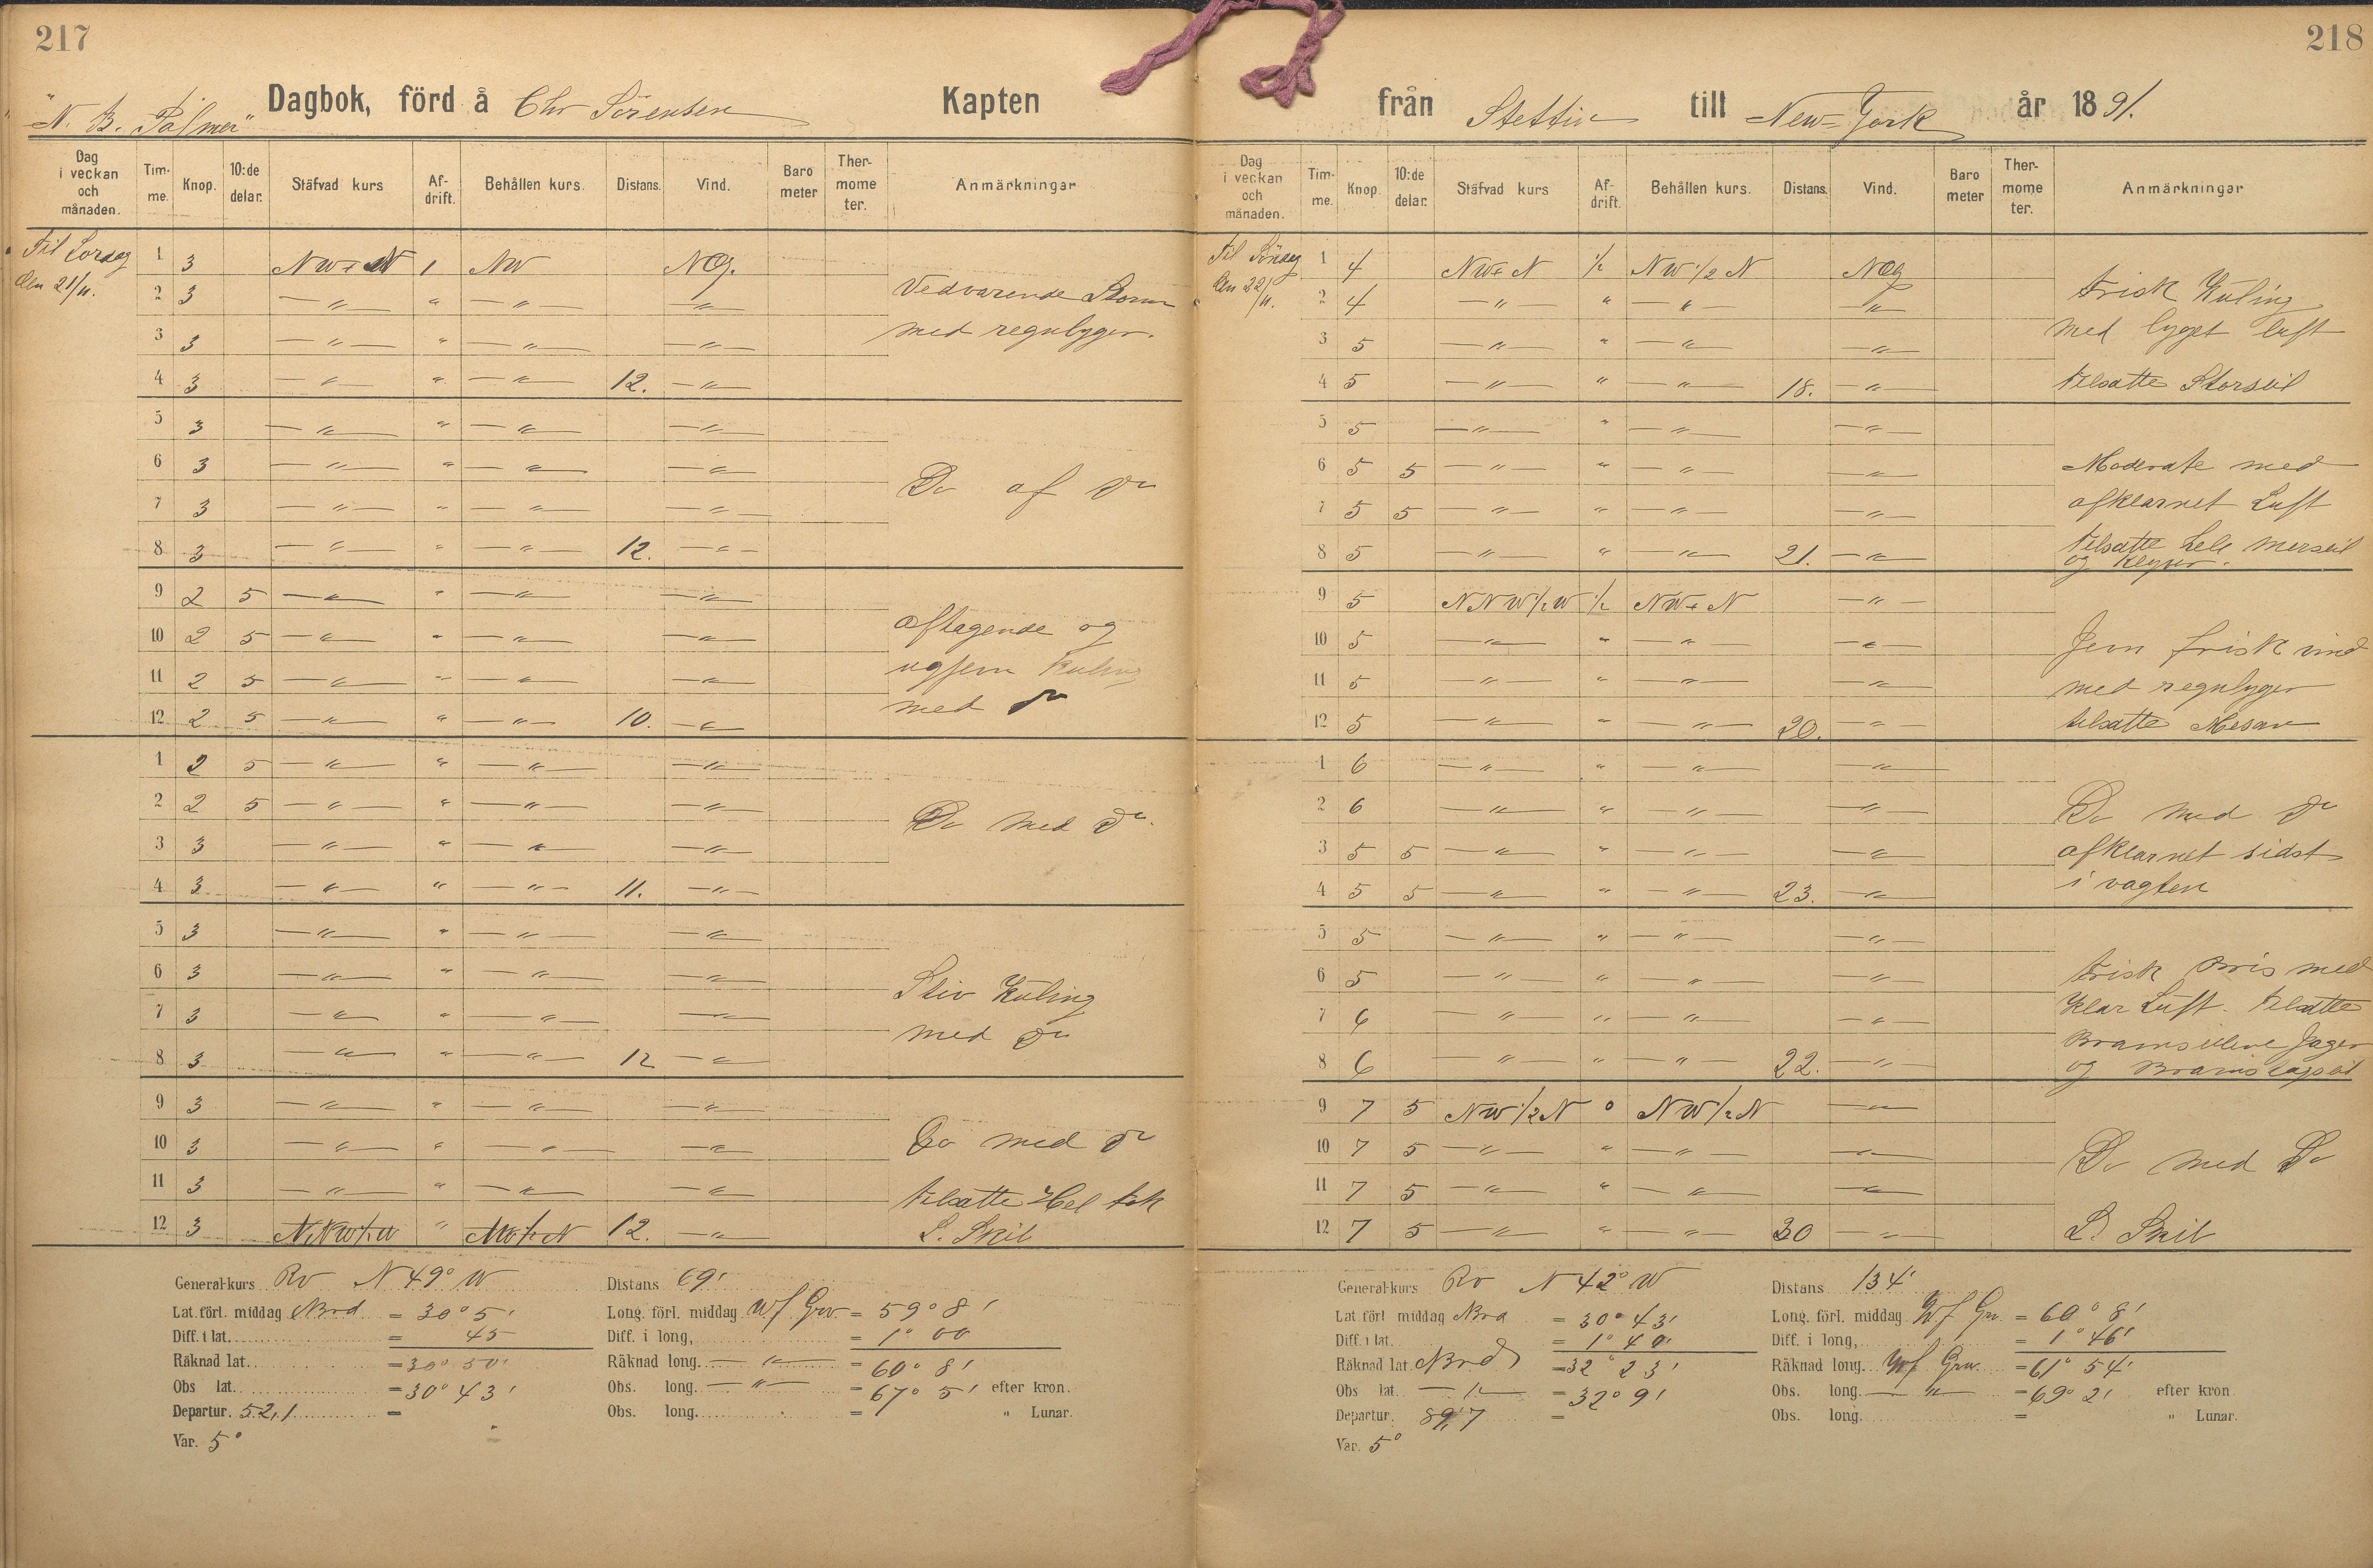 217
"N. B. Palmer" Dagbok, förd å Chr Sörensen Kapten
Dag i veckan och månaden. Timme. Knop. 10:de delar. Stäfvad kurs Afdrift. Behållen kurs. Distans. Vind. Barometer Thermometer. Anmärkningar
Til Lordag
den 21/11.
1 3 NW+N 1 NW NO.
2 3 — " — " — " — — " — Vedvarende Storm
3 3 — " — " — " — — " — med regnbyger.
4 3 — " — " — " — 12. — " —
5 3 — " — " — " — — " —
6 3 — " — " — " — — " —
7 3 — " — " — " — — " — Do af Do
8 3 — " — " — " — 12. — " —
9 2 5 — " — " — " — — " —
10 2 5 — " — " — " — — " — Aftagende og
11 2 5 — " — " — " — — " — Kuling
12 2 5 — " — " — " — 10. — " — med Do
1 2 5 — " — " — " — — " —
2 2 5 — " — " — " — — " — Do med Do.
3 3 — " — " — " — — " —
4 3 — " — " — " — 11. — " —
5 3 — " — " — " — — " —
6 3 — " — " — " — — " — Stiv Kuling
7 3 — " — " — " — — " — med Do
8 3 — " — " — " — 12 — " —
9 3 — " — " — " — — " —
10 3 — " — " — " — — " — Do med Do
11 3 — " — " — " — — " — tilsatte
12 3 " 12. — " —
General-kurs Rv N 49° W Distans 69'
Lat. förl. middag Nrd = 30° 5' Long. förl. middag Wf Grv = 59° 8'
Diff. i lat. = 45 Diff. i long, = 1° 00
Räknad lat. = 30° 50' Räknad long. — " — = 60° 8'
Obs lat. = 30° 43' Obs. long. — " — = 67° 5' efter kron.
Departur. 52,1 = Obs. long. = " Lunar.
Var. 5°
218
från Stettin till New=York år 1891.
Dag i veckan och månaden. Timme. Knop. 10:de delar. Stäfvad kurs Afdrift. Behållen kurs. Distans. Vind. Barometer Thermometer. Anmärkningar
Til Söndag
den 22/11.
1 4 NW+N 1/2 NW 1/2 N NO
2 4 — " — " — " — — " — Frisk Kuling
3 5 — " — " — " — — " — med byget luft
4 5 — " — " — " — 18. — " — tilsatte Storseil
5 5 — " — " — " — — " —
6 5 5 — " — " — " — — " — Moderate med
7 5 5 — " — " — " — — " — afklarnet Luft
8 5 — " — " — " — 21. — " — tilsatte hele merseil
og Klyver.
9 5 NNW 1/2 W 1/2 NW+N — " —
10 5 — " — " — " — — " — Jevn frisk vind
11 5 — " — " — " — — " — med regnbyger
12 5 — " — " — " — 20. — " — tilsatte Mesan
1 6 — " — " — " — — " —
2 6 — " — " — " — — " — Do med Do
3 5 5 — " — " — " — — " — afklarnet sidst
4 5 5 — " — " — " — 23. — " — i vagten
5 5 — " — " — " — — " —
6 5 — " — " — " — — " — Frisk Bris med
7 6 — " — " — " — — " — Klar Luft. tilsatte
8 6 — " — " — " — 22. — " — Bramseilene Jager
og
9 7 5 NW 1/2 N 0 NW 1/2 N — " —
10 7 5 — " — " — " — — " — Do med Do
11 7 5 — " — " — " — — " —
12 7 5 — " — " — " — 30 — " —
General-kurs Rv N 42° W Distans 134'
Lat förl middag Nrd = 30° 43' Long. förl. middag Wf Grv = 60° 8'
Diff. i lat. = 1° 40' Diff. i long, = 1° 46'
Räknad lat. Nrd = 32° 23' Räknad long. Wf Grv. = 61° 54'
Obs lat. — " — = 32° 9' Obs. long. — " — = 69° 2' efter kron.
Departur. 89,7 = Obs. long. = " Lunar.
Var. 5°